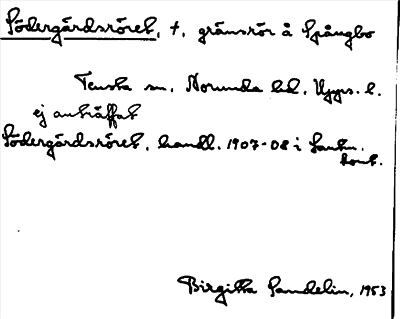 Södergårdsröret, t, gränsrör å Spångbo
Tensta sn, Norunda hd, Upps. l.
ej anträffat
Södergårdsröret, handl. 1907-08 i Lantm.
kont.
Birgitta Sandelin, 1953